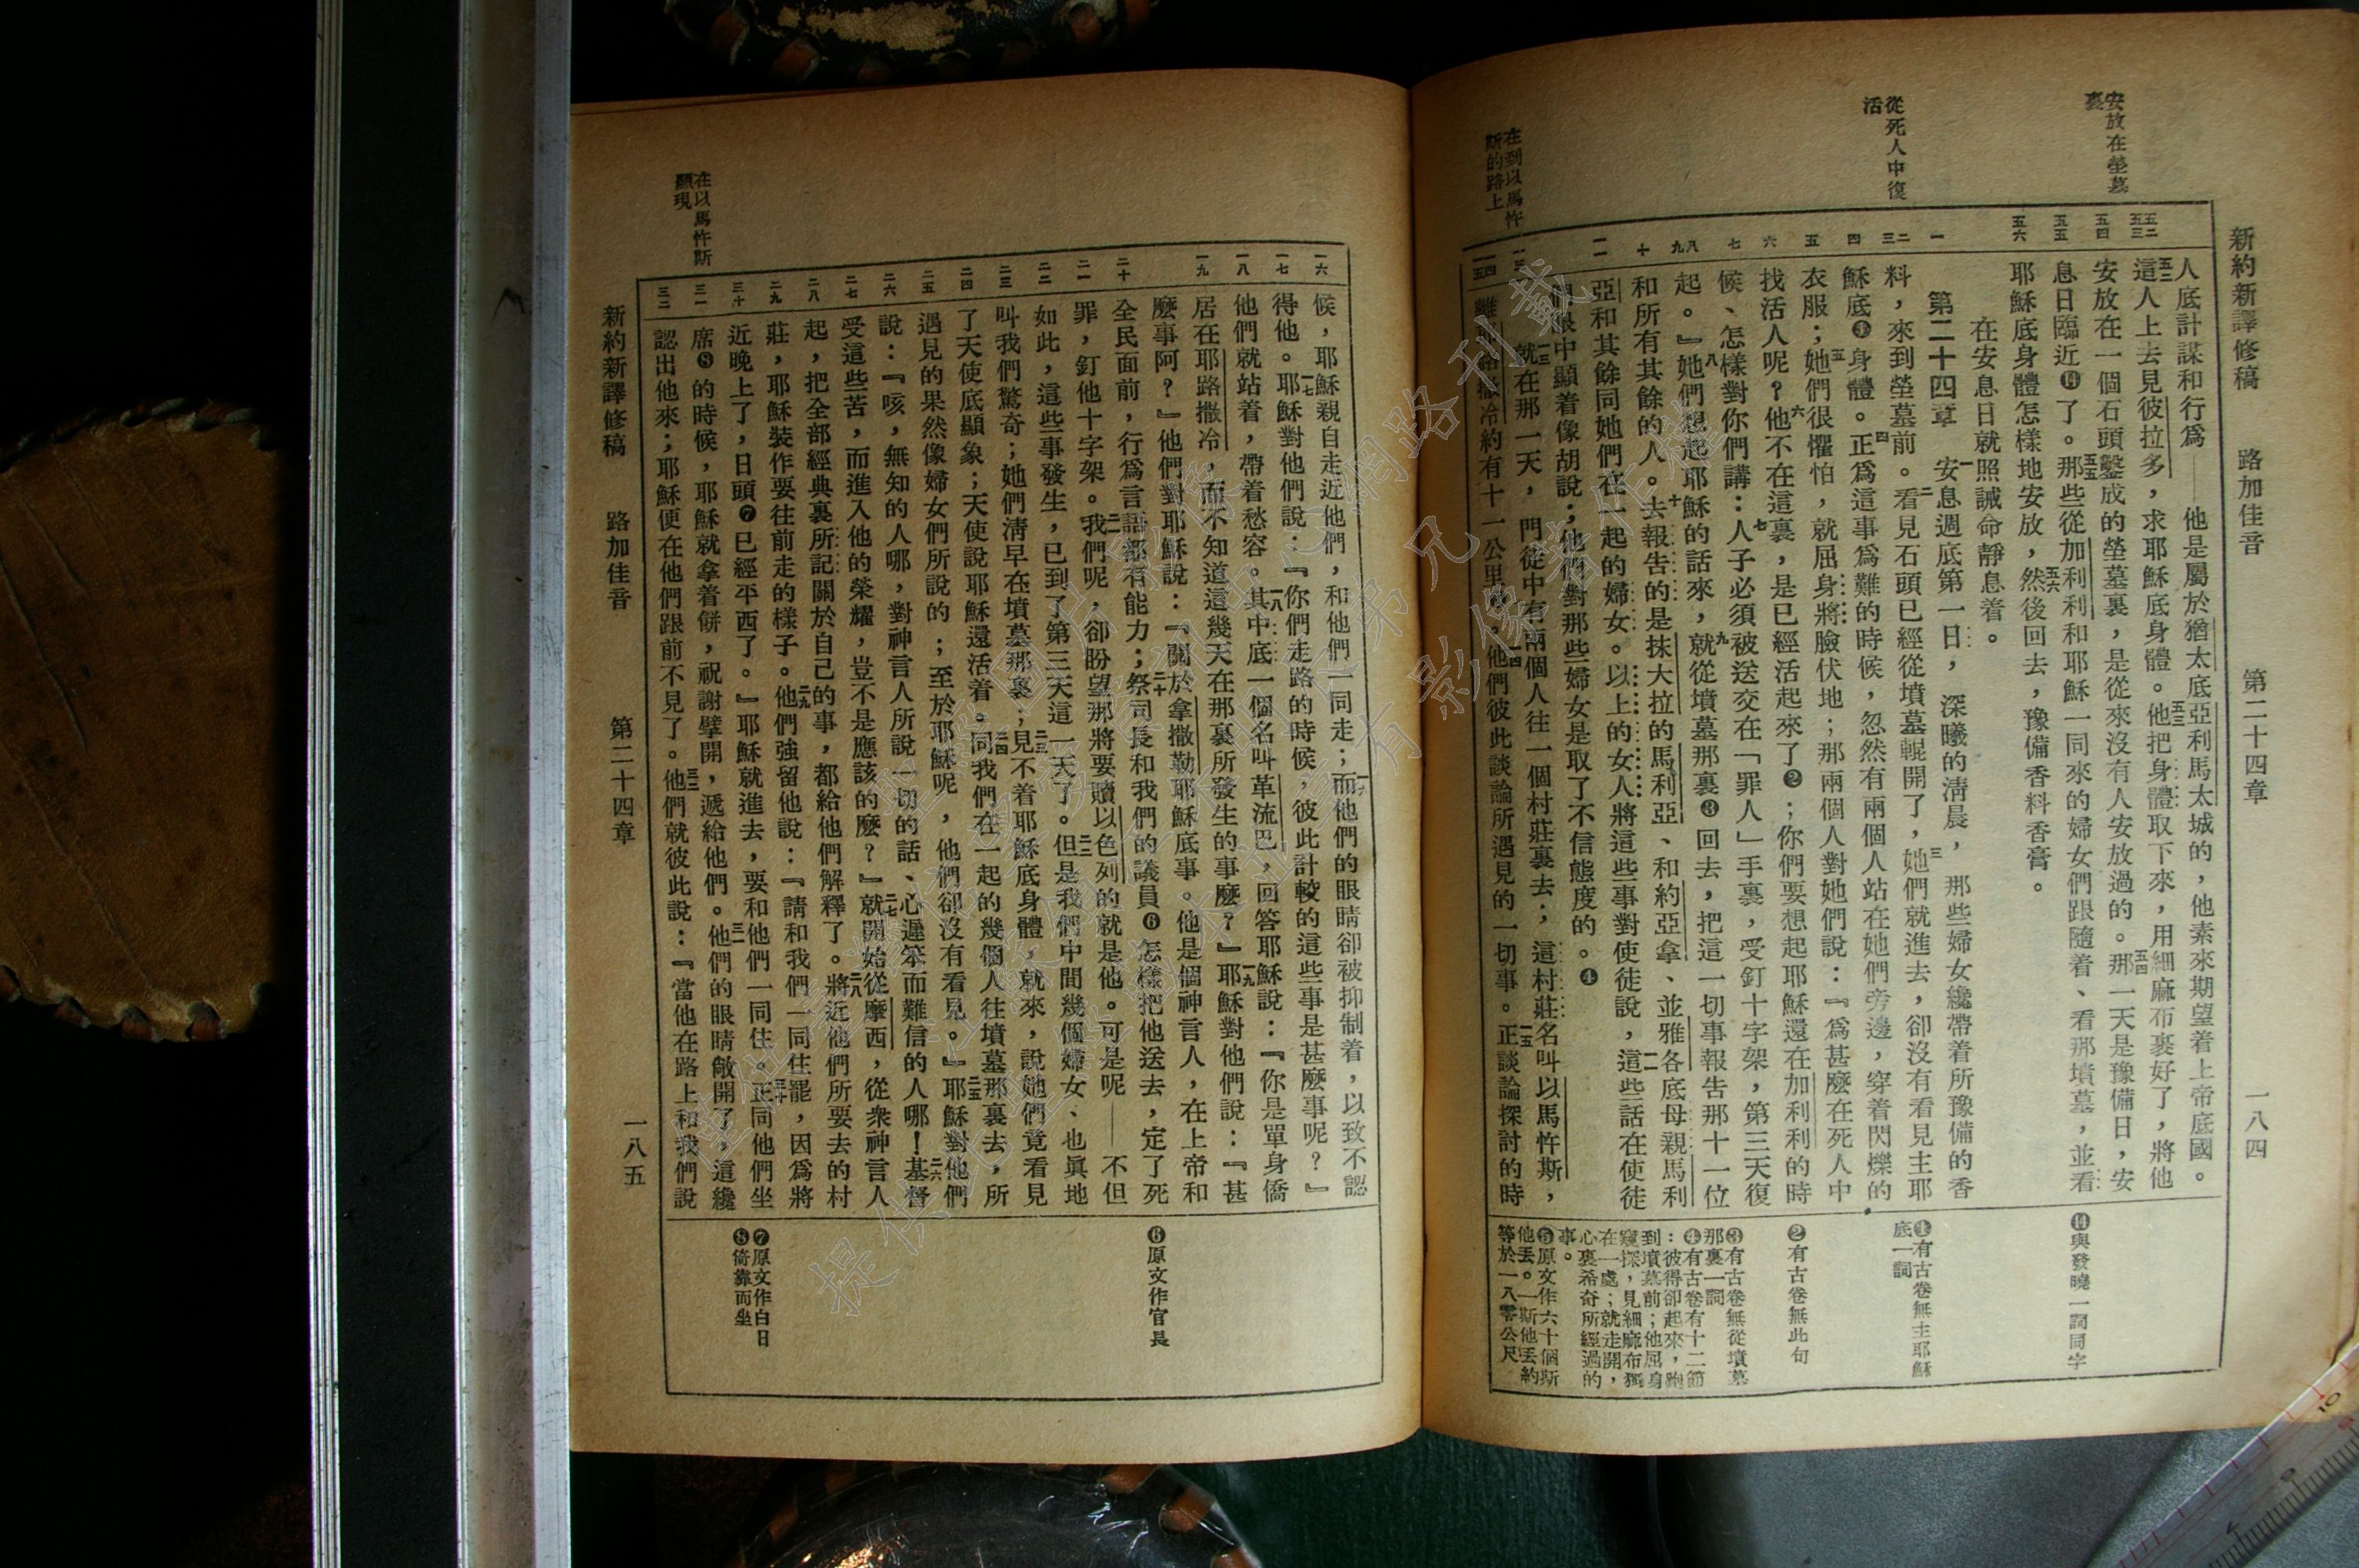 新約新譯修稿　路加佳音　第二十四章　一八四
安放在塋墓
裏
從死人中復
活
在到以馬忤
斯的路上
五二
五三
五四
五五
五六
一
二
三
四
五
六
七
八
九
十
一一
一三
一四
一五
人底計謀和行爲——他是屬於猶太底亞利馬太城的，他素來期望着上帝底國。
五二這人上去見彼拉多，求耶穌底身體。五三他把身體取下來，用細麻布裹好了，將他
安放在一個石頭鑿成的塋墓裏，是從來沒有人安放過的。五四那一天是豫備日，安
息日臨近⓮了。五五那些從加利利和耶穌一同來的婦女們跟隨着、看那墳墓，並看
耶穌底身體怎樣地安放，五六然後回去，豫備香料香膏。
在安息日就照誡命靜息着。
第二十四章　一安息週底第一日，深曦的清晨，那些婦女纔帶着所豫備的香
料，來到塋墓前。二看見石頭已經從墳墓輥開了，三她們就進去，卻沒有看見主耶
穌底❶身體。四正爲這事爲難的時候，忽然有兩個人站在她們旁邊，穿着閃爍的
衣服；五她們很懼怕，就屈身將臉伏地；那兩個人對她們說：『爲甚麼在死人中
找活人呢？六他不在這裏，是已經活起來了❷；你們要想起耶穌還在加利利的時
候、怎樣對你們講：七人子必須被送交在「罪人」手裏，受釘十字架，第三天復
起。』八她們想起耶穌的話來，九就從墳墓那裏❸回去，把這一切事報告那十一位
和所有其餘的人。十去報告的是抹大拉的馬利亞、和約亞拿、並雅各底母親馬利
亞和其餘同她們在一起的婦女。以上的女人將這些事對使徒說，一一這些話在使徒
眼中顯着像胡說；他們對那些婦女是取了不信態度的。❹
一三就在那一天，門徒中有兩個人往一個村莊裏去；這村莊名叫以馬忤斯，
離耶路撒冷約有十一公里❺，一四他們彼此談論所遇見的一切事。一五正談論探討的時
⓮與發曉一詞同字
❶有古卷無主耶穌
底一詞
❷有古卷無此句
❸有古卷無從墳墓
那裏一詞
❹有古卷有十二節
：彼得卻起來，跑
到墳墓前；他屈身
窺探，見細麻布獨
在一處；就走開，
心裏希奇所經過的
事。
❺原文作六十個斯
他丟。一斯他丟約
等於一八零公尺
在以馬忤斯
顯現
一六
一七
一八
一九
二十
二一
二二
二三
二四
二五
二六
二七
二八
二九
三十
三一
三二
候，耶穌親自走近他們，和他們一同走；一六而他們的眼睛卻被抑制着，以致不認
得他。一七耶穌對他們說：『你們走路的時候，彼此計較的這些事是甚麼事呢？』
他們就站着，帶着愁容。一八其中底一個名叫革流巴，回答耶穌說：『你是單身僑
居在耶路撒冷，而不知道這幾天在那裏所發生的事麼？』一九耶穌對他們說：『甚
麼事阿？』他們對耶穌說：『關於拿撒勒耶穌底事。他是個神言人，在上帝和
全民面前，行爲言語都有能力；二十祭司長和我們的議員❻怎樣把他送去，定了死
罪，釘他十字架。二一我們呢，卻盼望那將要贖以色列的就是他。可是呢——不但
如此，這些事發生，已到了第三天這一天了。二二但是我們中間幾個婦女、也眞地
叫我們驚奇；她們清早在墳墓那裏；二三見不着耶穌底身體，就來，說她們竟看見
了天使底顯象；天使說耶穌還活着。二四同我們在一起的幾個人往墳墓那裏去，所
遇見的果然像婦女們所說的；至於耶穌呢，他們卻沒有看見。』二五耶穌對他們
說：『咳，無知的人哪，對神言人所說一切的話、心遲笨而難信的人哪！二六基督
受這些苦，而進入他的榮耀，豈不是應該的麼？』二七就開始從摩西，從衆神言人
起，把全部經典裏所記關於自己的事，都給他們解釋了。二八將近他們所要去的村
莊，耶穌裝作要往前走的樣子。二九他們強留他說：『請和我們一同住罷，因爲將
近晚上了，日頭❼已經平西了。』耶穌就進去，要和他們一同住。三十正同他們坐
席❽的時候，耶穌就拿着餅，祝謝擘開，遞給他們。三一他們的眼睛敞開了，這纔
認出他來；耶穌便在他們跟前不見了。三二他們就彼此說：『當他在路上和我們說
❻原文作官長
❼原文作白日
❽倚靠而坐
新約新譯修稿　路加佳音　第二十四章　一八五